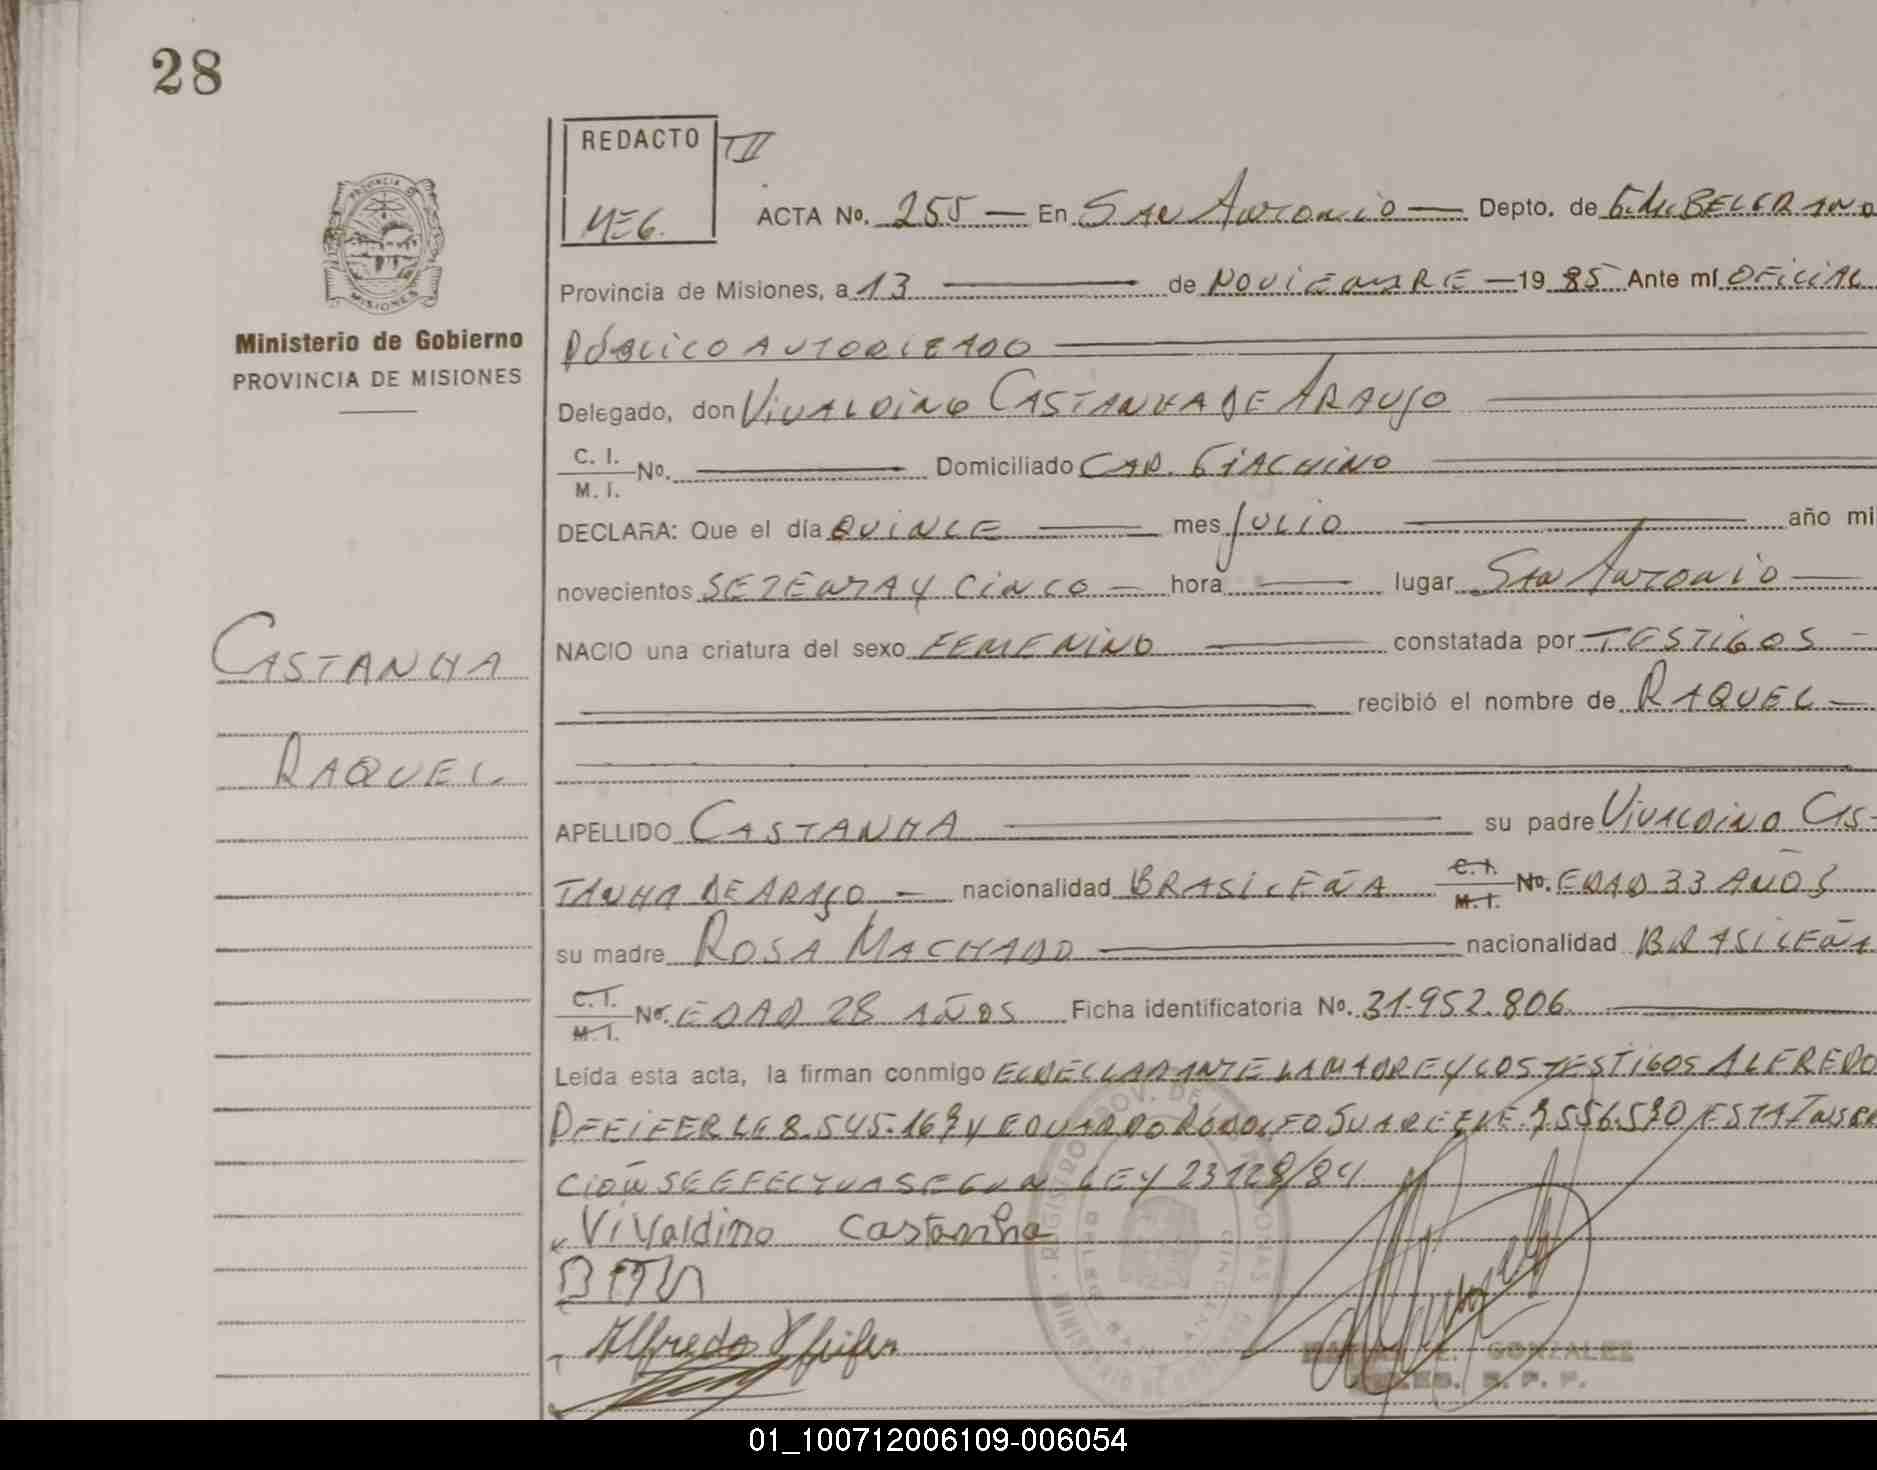 28
REDACTO TII
MEG.
ACTA No. 255 — En SAN ANTONIO — Depto. de G.M. BELGRANO
Provincia de Misiones, a 13 — de NOVIEMBRE — 19 85 Ante mí OFICIAL
PÚBLICO AUTORIZADO
Ministerio de Gobierno
PROVINCIA DE MISIONES
Delegado, don VIVALDINO CASTANHA DE ARAUJO
C. I.
M. I. No. — Domiciliado CAP. GIACHINO
DECLARA: Que el día QUINCE — mes JULIO — año mi
novecientos SETENTA Y CINCO — hora — lugar SAN ANTONIO —
NACIO una criatura del sexo FEMENINO — constatada por TESTIGOS —
CASTANHA
recibió el nombre de RAQUEL —
RAQUEL
APELLIDO CASTANHA — su padre VIVALDINO CAS-
TANHA DE ARAJO — nacionalidad BRASILEÑA C. I. M. I. No. EDAD 33 AÑOS
su madre ROSA MACHADO — nacionalidad BRASILEÑA
C. I. M. I. No. EDAD 28 AÑOS Ficha identificatoria No. 31.952.806. —
Leída esta acta, la firman conmigo EL DECLARANTE LA MADRE Y LOS TESTIGOS ALFREDO
PFEIFER LE 8.545.169 Y EDUARDO RODOLFO SUAREZ LE. 7.556.530 ESTA INSCR
CIÓN SE EFECTUA SEGUN LEY 23128/84
Vivaldino Castanha
Alfredo Pfeifer
E. GONZALEZ
01_100712006109-006054